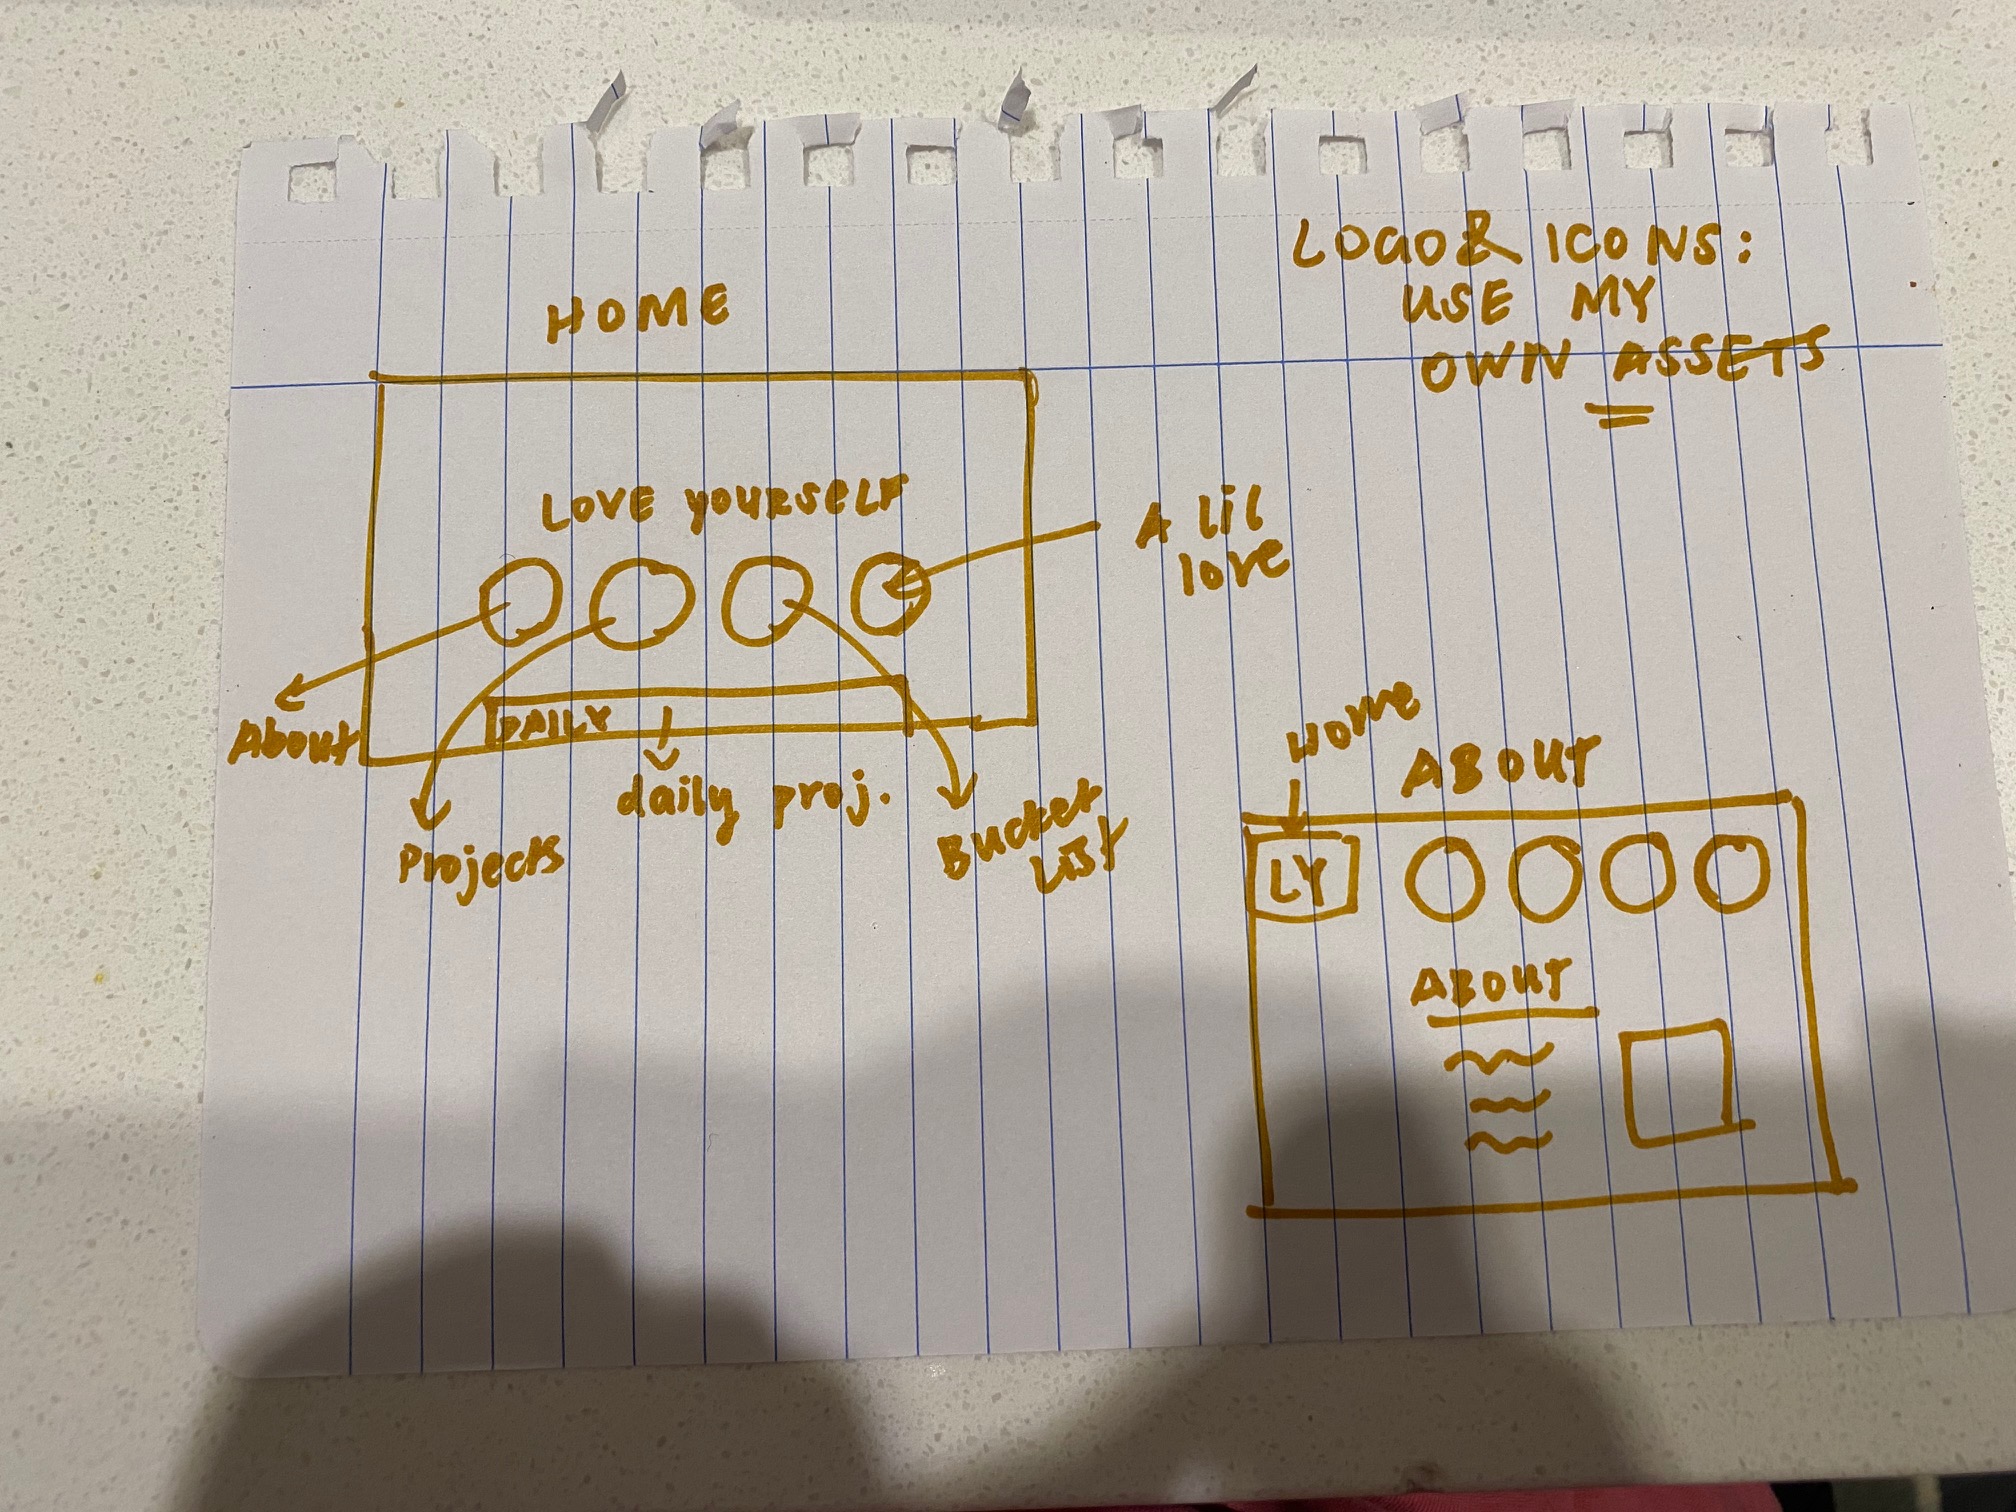 HOME
LOVE yourself
DAILY
About
Projects
daily proj.
Bucket
List
A lil
love
LOGO & ICONS:
USE MY
OWN ASSETS
Home
ABOUT
LY
ABOUT